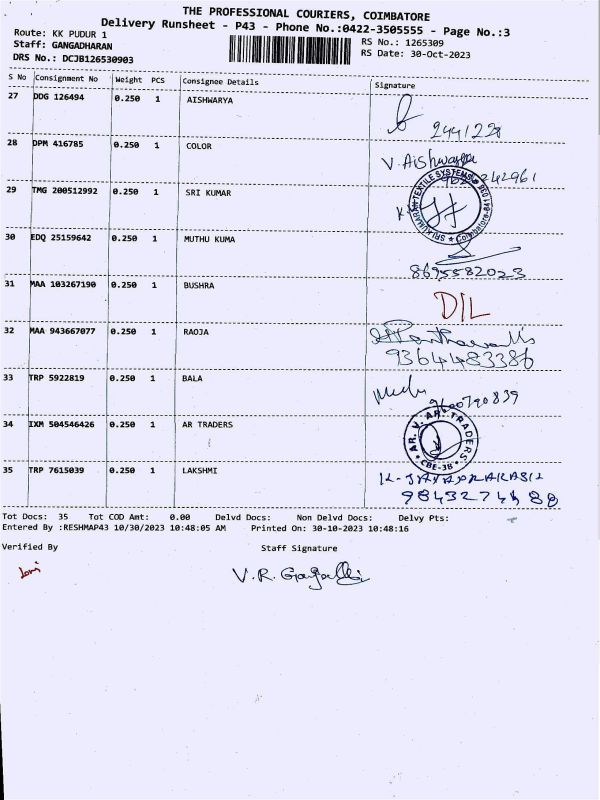 THE PROFESSIONAL COURIERS, COIMBATORE
Delivery Runsheet - P43 - Phone No.:0422-3505555 - Page No.:3
Route: KK PUDUR 1
RS No.: 1265309
Staff: GANGADHARAN
RS Date: 30-Oct-2023
DRS No.: DCJB126530903
S No Consignment No Weight PCS Consignee Details Signature
27 DDG 126494 0.250 1 AISHWARYA
2441228
28 DPM 416785 0.250 1 COLOR
V. Aishwarya
242961
29 TMG 200512992 0.250 1 SRI KUMAR
SRI KUMARAN TEXTILE SYSTEMS
30 EDQ 25159642 0.250 1 MUTHU KUMA
8695582023
31 MAA 103267190 0.250 1 BUSHRA
DIL
32 MAA 943667077 0.250 1 RAOJA
9364483386
33 TRP 5922819 0.250 1 BALA
9600790839
34 IXM 504546426 0.250 1 AR TRADERS
AR. V. AR. TRADERS
* CBE-38 *
35 TRP 7615039 0.250 1 LAKSHMI
K-JAYAPRAKASH
9843274488
Tot Docs: 35 Tot COD Amt: 0.00 Delvd Docs: Non Delvd Docs: Delvy Pts:
Entered By :RESHMAP43 10/30/2023 10:48:05 AM Printed On: 30-10-2023 10:48:16
Verified By Staff Signature
V.R.